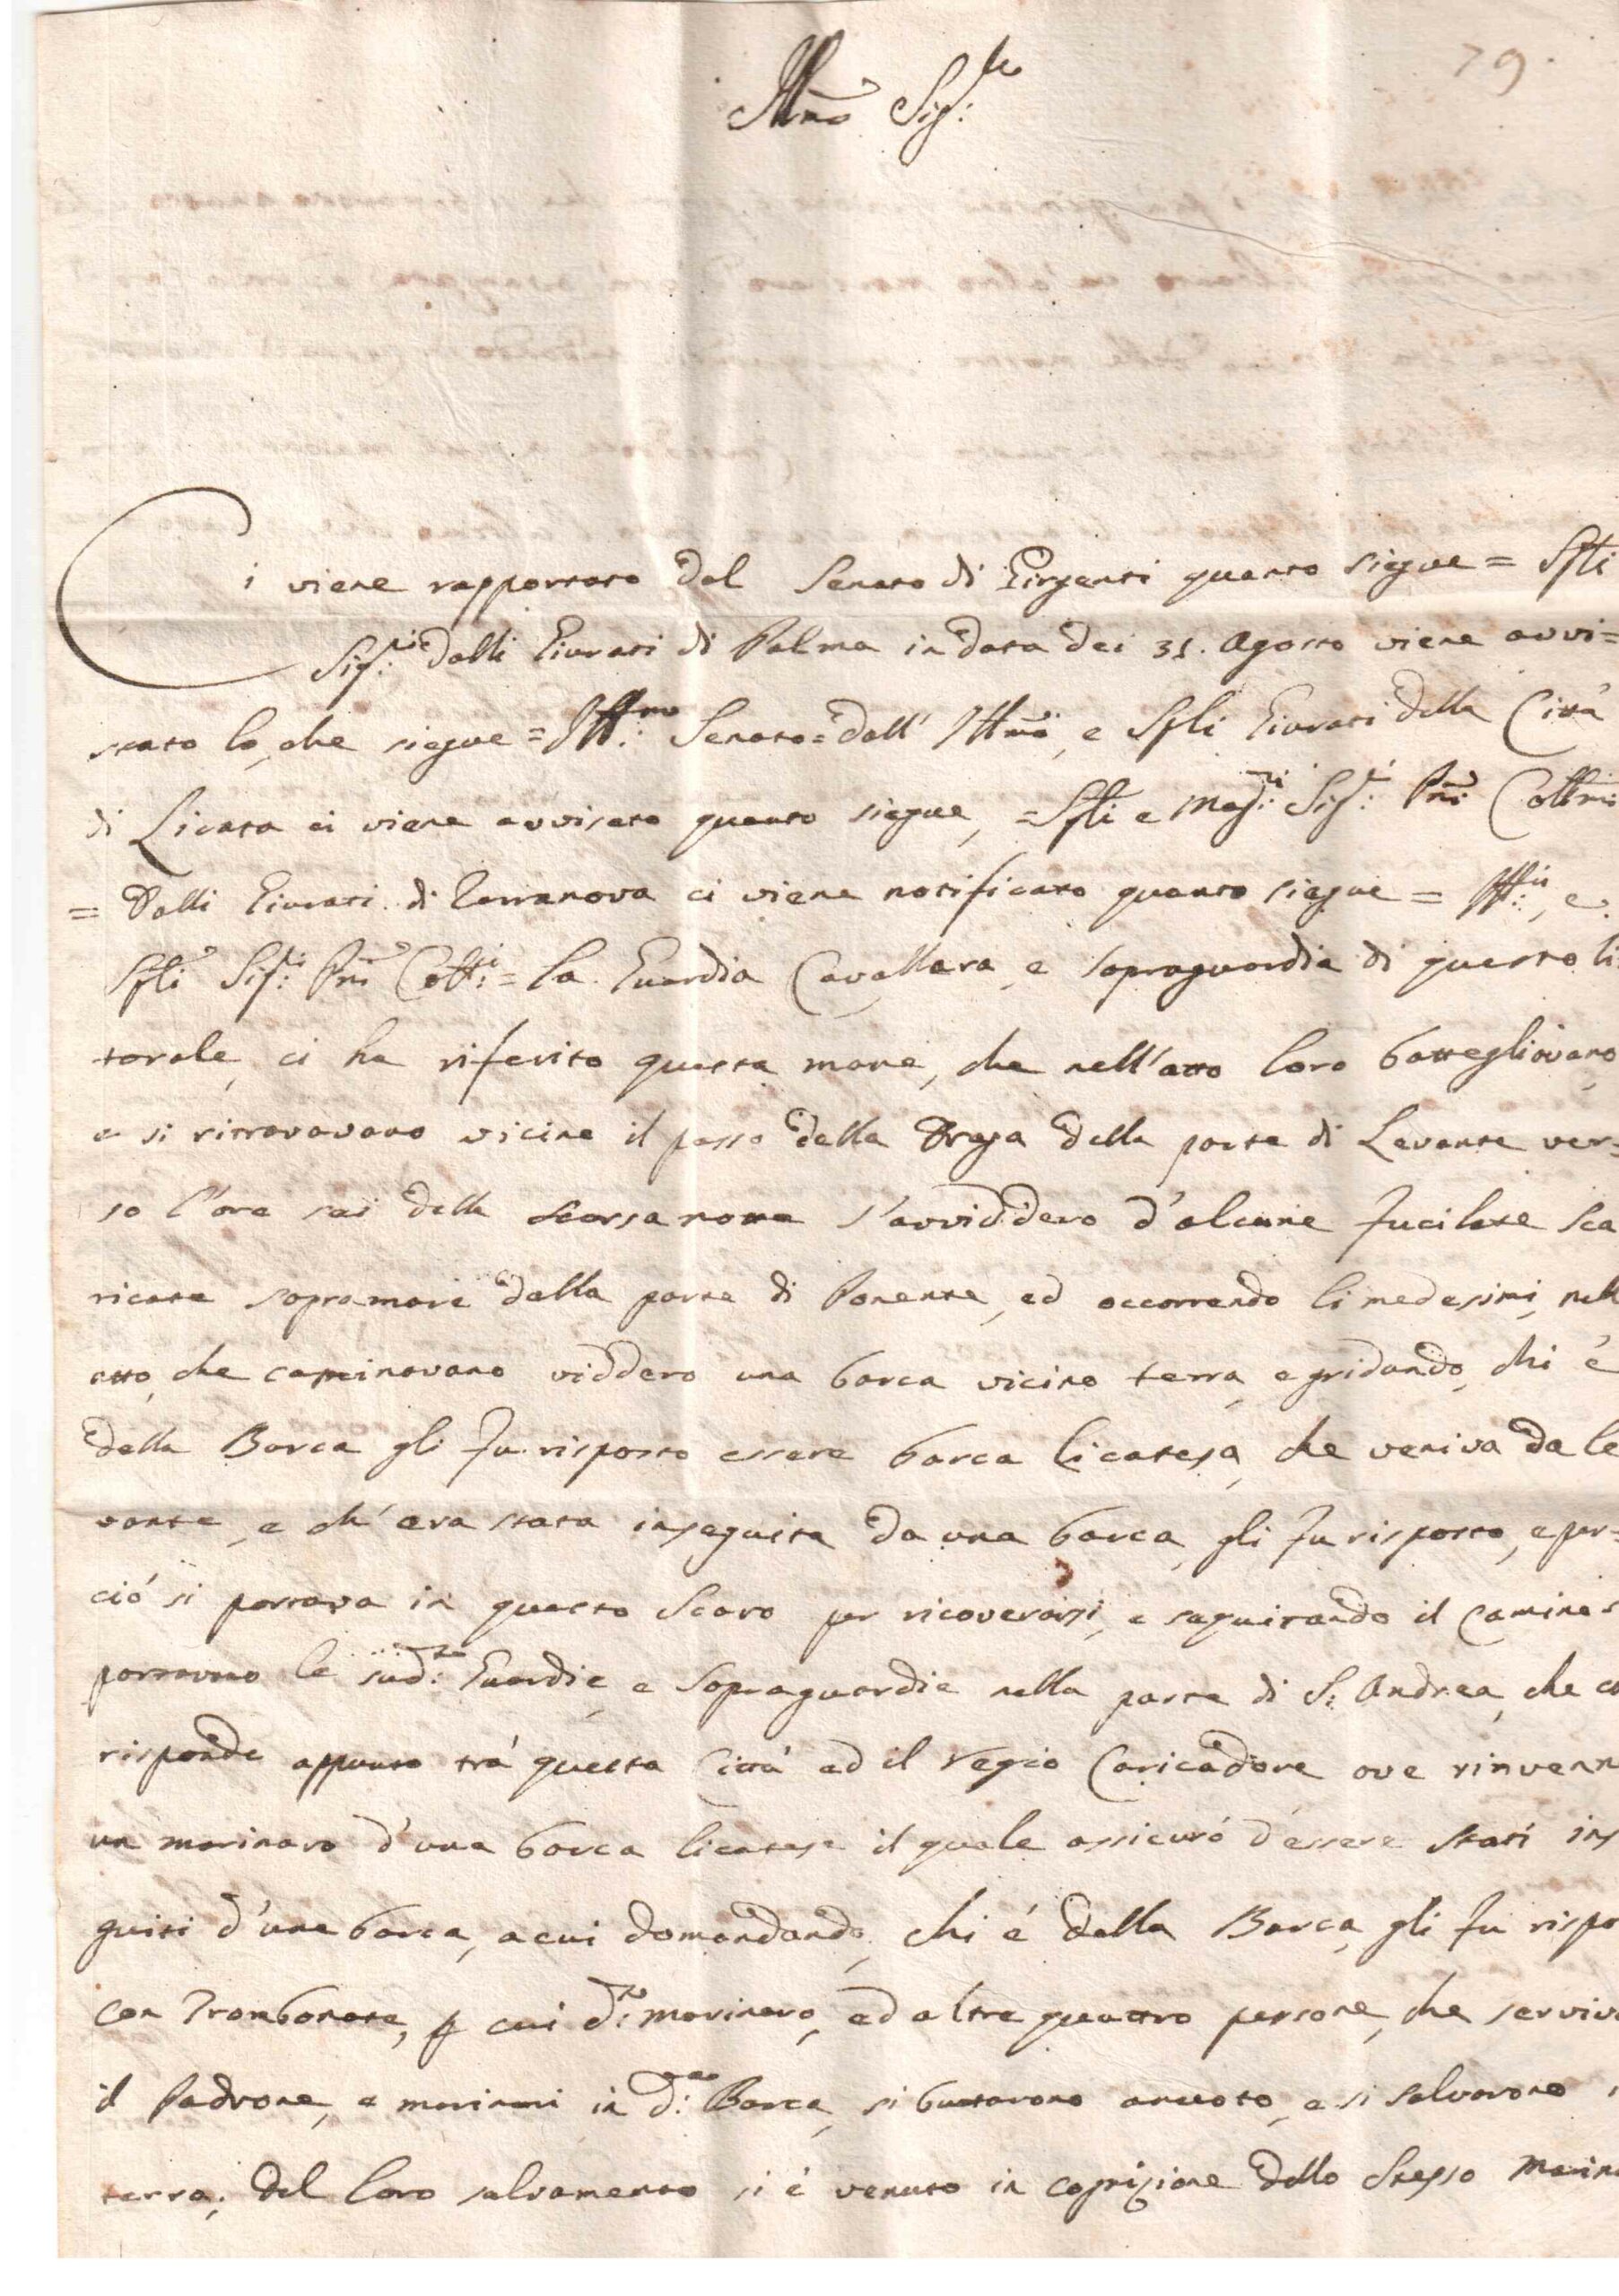 79.
Illmo Sig.re
Ci viene rapportato dal Senato di Girgenti quanto siegue = Sptti
Sig.ri dalli Giurati di Palma in data dei 31. Agosto viene avvi=
sato lo, che siegue = Ill.mo Senato = dall' Illmi, e Sptli Giurati della Città
di Licata ci viene avvisato quanto siegue, = Sptli e Mag.ci Sig.ri Pni Colmi
= Dalli Giurati di Terranova ci viene notificato quanto siegue = Ill.mi, e
Sptli Sig.ri Pni Coll.mi = La Guardia Cavallara, e sopraguardia di questo li
torale, ci ha riferito questa mane, che nell'atto loro battegliavano
e si ritrovavano vicine il passo della Draga della parte di Levante ver=
so l'ore sei della scorsa notte s'avviddero d'alcune fucilate sca
ricate sopra mare dalla parte di Ponente, ed accorrendo li medesimi, nell
atto, che caminavano viddero una barca vicino terra, e gridando, chi è
della Barca gli fu risposto essere barca licatesa, che veniva da le
vante, e ch'era stata inseguita da una barca, gli fu risposto, e per=
ciò si portava in questo Scaro per ricoverarsi, e seguitando il camino s
portarono le sud.te Guardie, e Sopraguardie nella parte di S. Andrea, che co
risponde appunto trà questa Città ed il regio Caricadore ove rinvenn
un marinaro d'una barca licatese il quale assicurò d'essere stati ins
guiti d'una barca, a cui domandando, chi è della Barca, gli fu rispo
con Trombonate, p cui d.to marinaro, ed altre quattro persone, che serviva
il Padrone, e marinari in d.ta Barca, si buttarono annoto, e si salvarono
terra; del loro salvamento si è venuto in cognizione dallo stesso marina